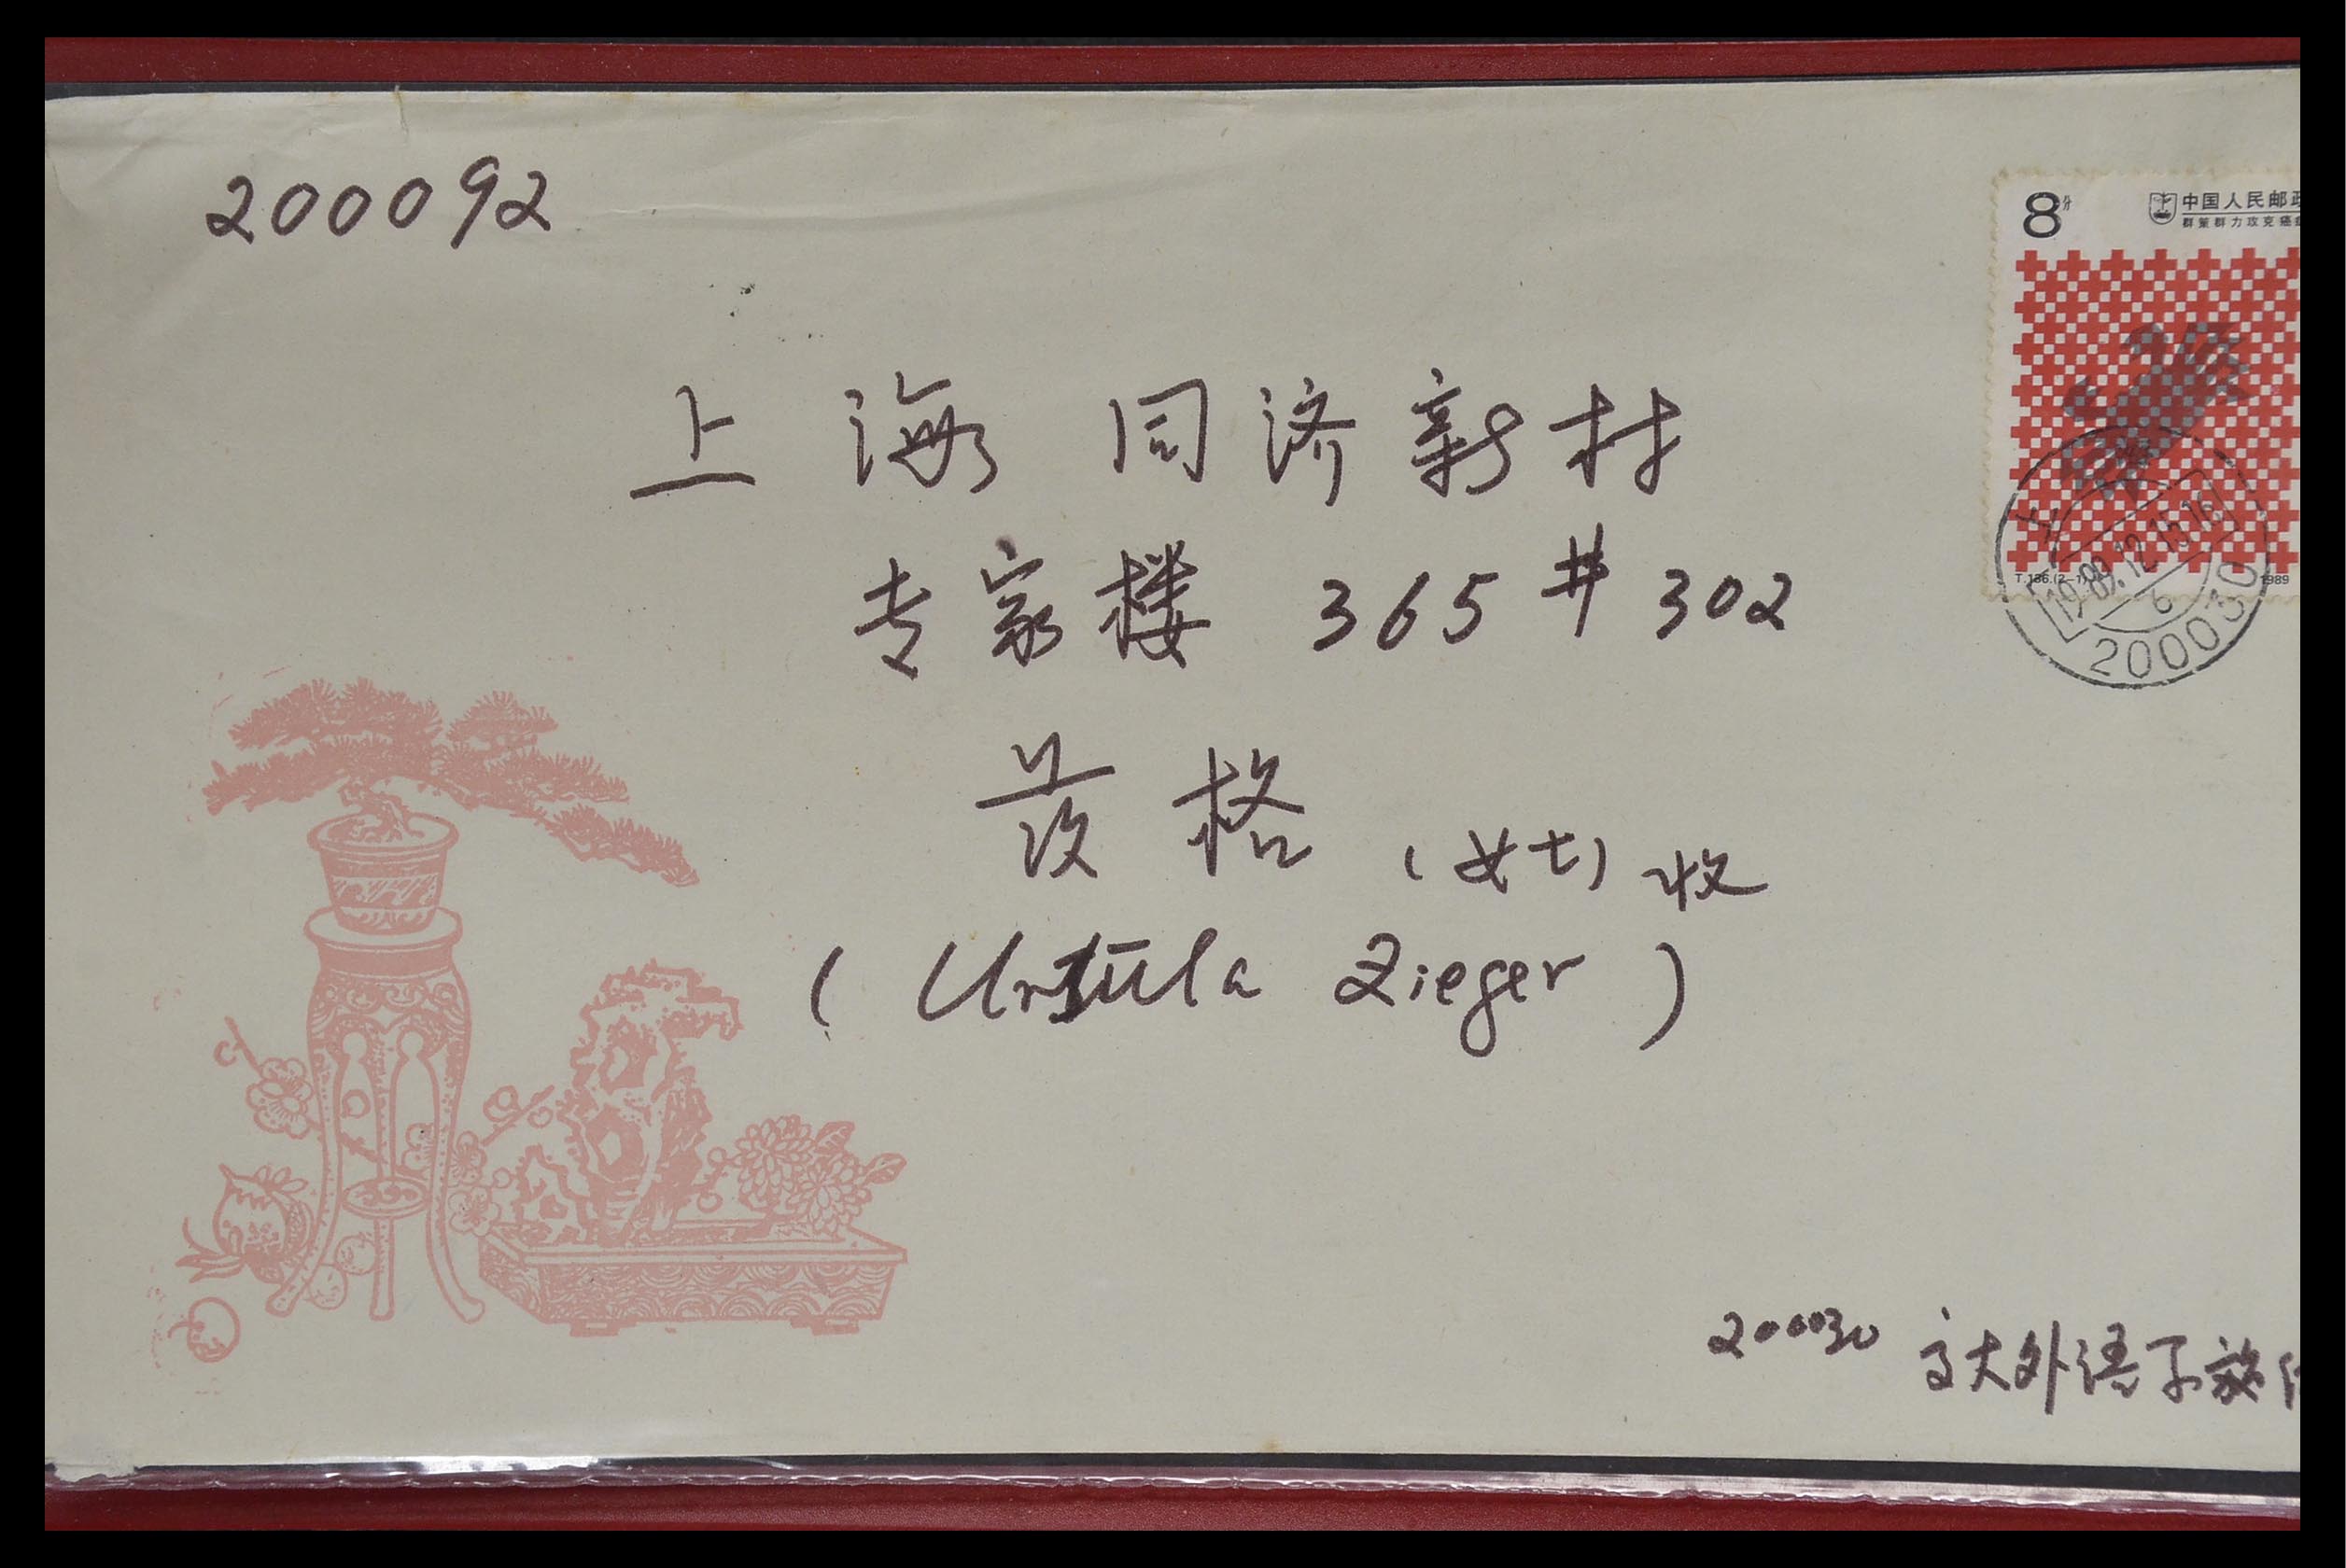 200092
8分
中国人民邮政
群策群力攻克癌
上海 同济新村
专家楼 365 # 302
格 (女士) 收
(Ursula Zieger)
T.136.(2-1) 1989
1989.12.15.16
6
200030
200030 交大外语系